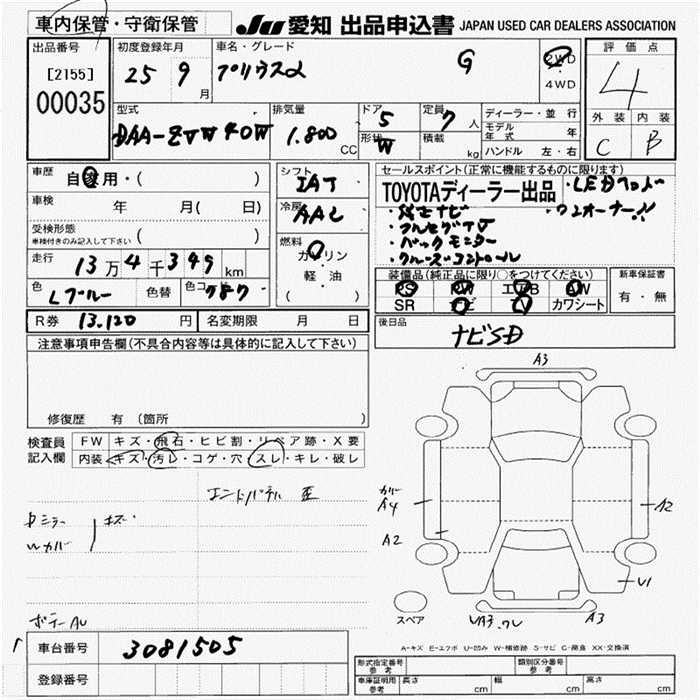 車内保管・守衛保管 JU 愛知 出品申込書 JAPAN USED CAR DEALERS ASSOCIATION
出品番号 初度登録年月 車名・グレード 評価点
[2155] 25 9 月 プリウスα G 2WD 4
00035 4WD
型式 排気量 ドア 5 定員 7 人 ディーラー・並行 外装 内装
DAA-ZVW40W 1.800 CC 形状 W 積載 kg モデル年式 年 C B
ハンドル 左・右
車歴 自家用・( ) シフト IAT セールスポイント(正常に機能するものに限ります)
車検 年 月( 日) 冷房 AAC TOYOTAディーラー出品 ・LEDヘッド
・純正ナビ ・ワンオーナー!!
受検形態 車検付きのみ記入して下さい ( ) ・フルセグTV
燃料 ガソリン ・バックモニター
走行 13万4千399km 軽・油 ・クルーズコントロール
( )
色 Lブルー 色替 色コード 787 装備品(純正品に限り○をつけてください) 新車保証書
PS PW エアB AW 有・無
R券 13.120 円 名変期限 月 日 SR ナビ TV カワシート
注意事項申告欄(不具合内容等は具体的に記入して下さい) 後日品 ナビSD
修復歴 有 (箇所 )
検査員記入欄 FW キズ・飛石・ヒビ割・リペア跡・X要
内装 キズ・汚レ・コゲ・穴・スレ・キレ・破レ
A3
エンドパネル 歪
カバー A4 A2
ドミラー キズ
Wカバー A2
U1
ボデーAU スペア A3
A-キズ E-エクボ U-凹み W-補修跡 S-サビ C-腐食 XX-交換済
車台番号 3081505
登録番号
形式指定番号 参考 類別区分番号 参考
車庫証明用 参考 長さ cm 幅 cm 高さ cm